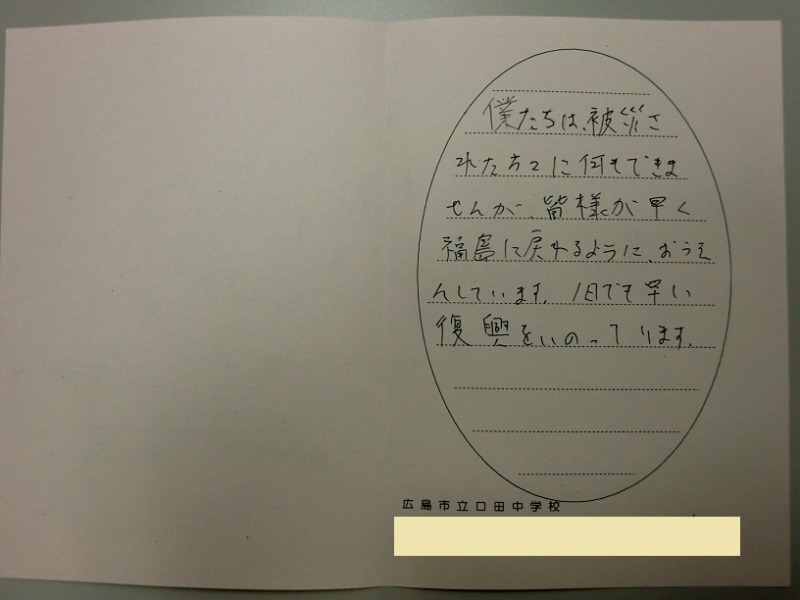 僕たちは、被災さ
れた方々に何もできま
せんが、皆様が早く
福島に戻れるように、おうえ
んしています。1日でも早い
復興をいのっています。
広島市立口田中学校